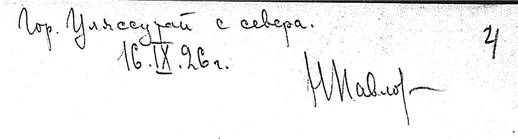 Гор. Улясутай с севера.
16.IX.26 г.
Н Павлов
4